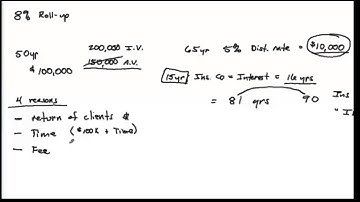 8% Roll-up
50yr
$100,000
200,000 I.V.
150,000 A.V.
65yr 5% Dist. rate = $10,000
15yr Ins. Co = Interest = 16 yrs
= 81 yrs 90
Ins
4 reasons
- return of clients $
- Time ($100K + Time)
- Fee